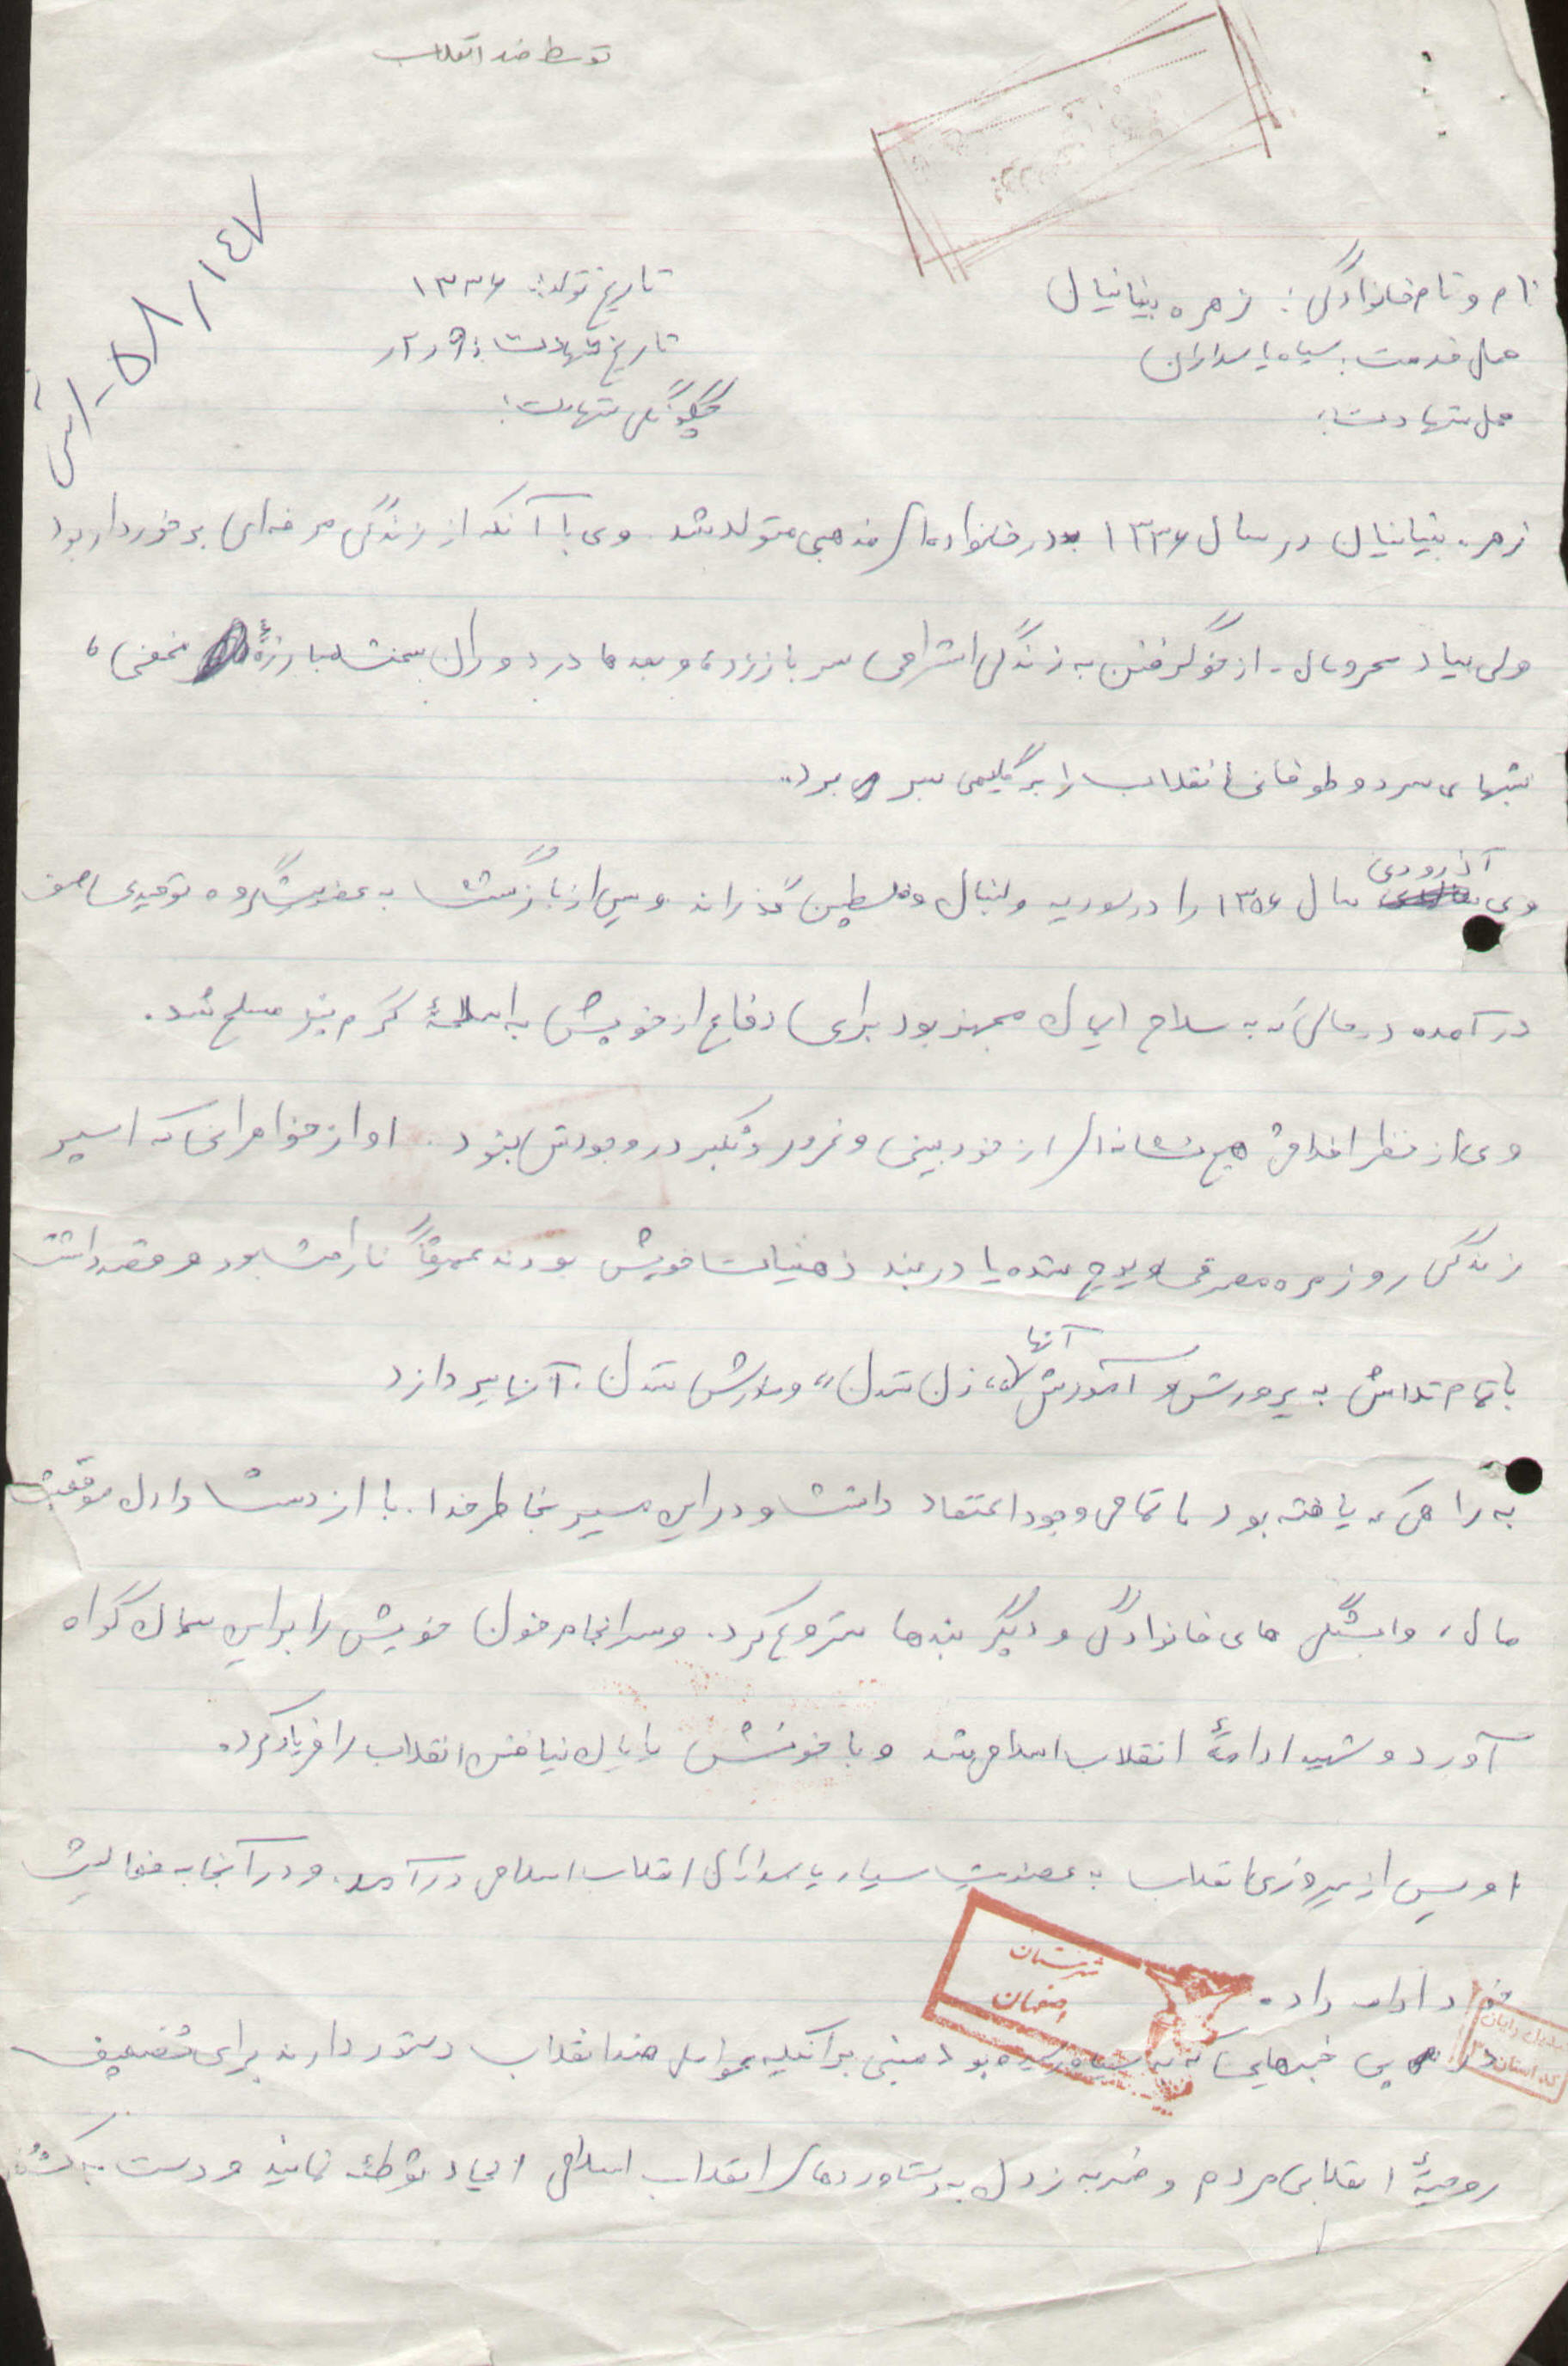 توسط ضد انقلاب
نام و نام خانوادگی: زهره بنیانیان
تاریخ تولد: ۱۳۳۶
محل خدمت: سپاه پاسداران
تاریخ شهادت:
محل شهادت:
چگونگی شهادت:
زهره بنیانیان در سال ۱۳۳۶ در خانواده‌ای مذهبی متولد شد. وی با آنکه از زندگی مرفه‌ای برخوردار بود
ولی بیاد محرومان، از خو گرفتن به زندگی اشرافی سر باز زد، و بعدها در دوران سخت مبارزهٔ مخفی،
شبهای سرد و طوفانی انقلاب را بر گلیمی بسر برد.
وی آذر و دی سال ۱۳۵۶ را در سوریه و لبنان و فلسطین گذراند و پس از بازگشت به عضویت گروه توحیدی صف
درآمده در حالی که به سلاح ایمان مجهز بود برای دفاع از خویش به اسلحهٔ گرم نیز مسلح شد.
وی از نظر اخلاقی هیچ نشانه‌ای از خودبینی و غرور و تکبر در وجودش نبود. او از خواهرانی که اسیر
زندگی روزمره مصرفی و پوچ شده یا در بند ذهنیات خویش بودند عمیقاً ناراحت بود و قصد داشت
با تمام تلاش به پرورش و آموزش آنها، زن شدن" و شدن آنها بپردازد
به راهی که یافته بود با تمامی وجود اعتقاد داشت و در این مسیر بخاطر خدا، با از دست دادن موقعیت
مال، وابستگی های خانوادگی و دیگر بندها شروع کرد. و سرانجام خون خویش را بر این گواه
آورد و شهید ادامهٔ انقلاب اسلامی شد و با خونش پایان نیافتن انقلاب را فریاد کرد.
او پس از پیروزی انقلاب به عضویت سپاه پاسداران انقلاب اسلامی درآمد. و در آنجا به فعالیت
خود ادامه داد.
شهرستان
اصفهان
کد استان
در پی خبرهایی که به سپاه رسیده بود مبنی بر آنکه عوامل ضد انقلاب دستور دارند برای تضعیف
روحیهٔ انقلابی مردم و ضربه زدن به دستاوردهای انقلاب اسلامی ایجاد توطئه نمایند و دست به